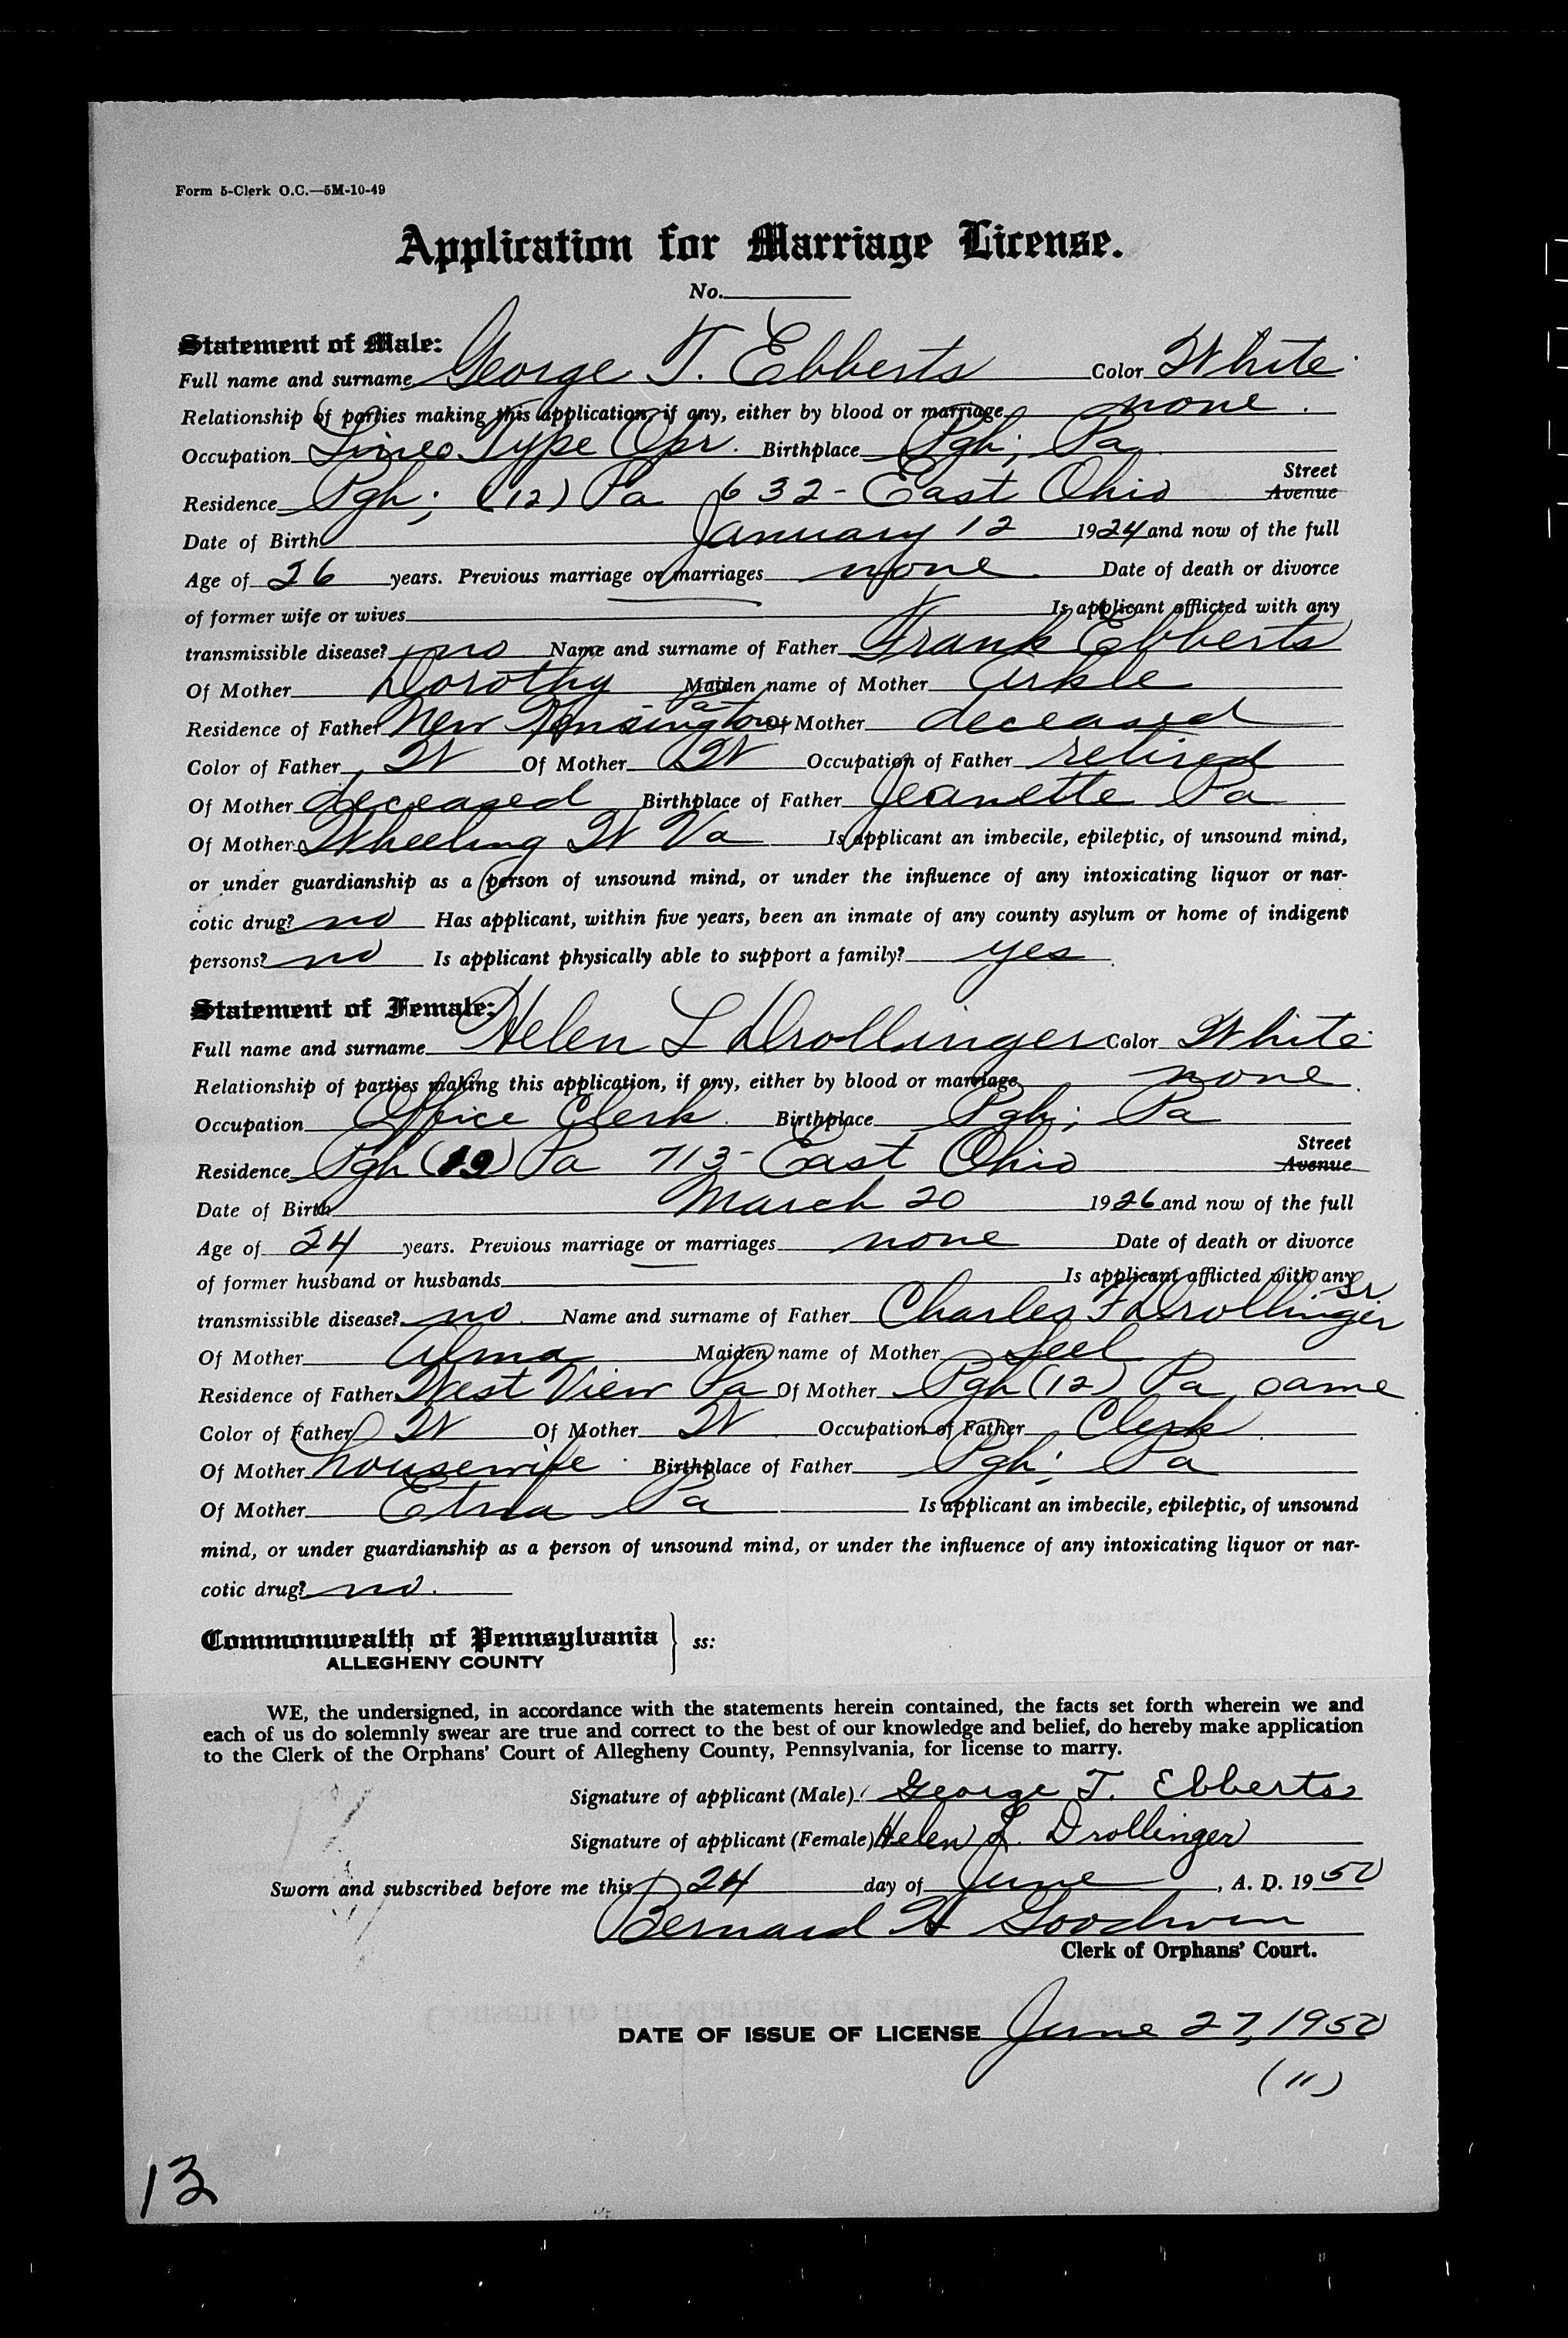 Form 5-Clerk O.C.—5M-10-49
Application for Marriage License.
No.
Statement of Male:
Full name and surname George T. Ebberts Color White
Relationship of parties making this application, if any, either by blood or marriage none.
Occupation Lineo Type Opr. Birthplace Pgh; Pa
Street
Residence Pgh; (12) Pa 632 - East Ohio Avenue
Date of Birth January 12 1924 and now of the full
Age of 26 years. Previous marriage or marriages none. Date of death or divorce
of former wife or wives Is applicant afflicted with any
transmissible disease? no Name and surname of Father Frank Ebberts
Of Mother Dorothy Maiden name of Mother Arkle
Residence of Father New Kensington Pa Of Mother deceased
Color of Father W Of Mother W Occupation of Father retired
Of Mother deceased Birthplace of Father Jeanette Pa
Of Mother Wheeling W Va Is applicant an imbecile, epileptic, of unsound mind,
or under guardianship as a person of unsound mind, or under the influence of any intoxicating liquor or nar-
cotic drug? no Has applicant, within five years, been an inmate of any county asylum or home of indigent
persons? no Is applicant physically able to support a family? yes
Statement of Female:
Full name and surname Helen L Drollinger Color White
Relationship of parties making this application, if any, either by blood or marriage none.
Occupation Office Clerk. Birthplace Pgh; Pa
Street
Residence Pgh (12) Pa 713 - East Ohio Avenue
Date of Birth March 20 1926 and now of the full
Age of 24 years. Previous marriage or marriages none Date of death or divorce
of former husband or husbands Is applicant afflicted with any
transmissible disease? no. Name and surname of Father Charles F Drollinger Sr.
Of Mother Alma Maiden name of Mother Seel
Residence of Father West View Pa Of Mother Pgh (12) Pa, same
Color of Father W Of Mother W Occupation of Father Clerk.
Of Mother housewife. Birthplace of Father Pgh; Pa
Of Mother Etna Pa Is applicant an imbecile, epileptic, of unsound
mind, or under guardianship as a person of unsound mind, or under the influence of any intoxicating liquor or nar-
cotic drug? no.
Commonwealth of Pennsylvania } ss:
ALLEGHENY COUNTY
WE, the undersigned, in accordance with the statements herein contained, the facts set forth wherein we and
each of us do solemnly swear are true and correct to the best of our knowledge and belief, do hereby make application
to the Clerk of the Orphans' Court of Allegheny County, Pennsylvania, for license to marry.
Signature of applicant (Male) George T. Ebberts
Signature of applicant (Female) Helen L. Drollinger
Sworn and subscribed before me this 24 day of June, A. D. 1950
Bernard H Goodwin
Clerk of Orphans' Court.
DATE OF ISSUE OF LICENSE June 27, 1950
(11)
13